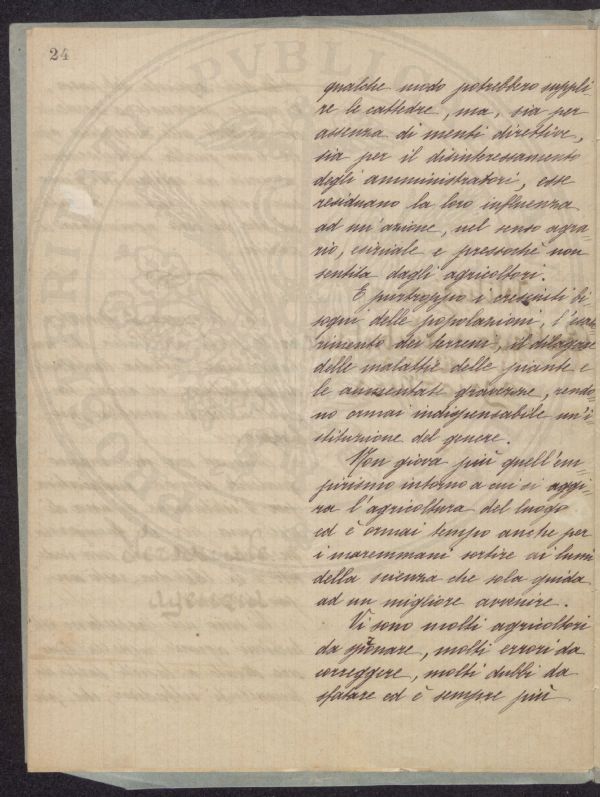 24
qualche modo potrebbero suppli-
re le cattedre, ma, sia per
assenza di menti direttive,
sia per il disinteressamento
degli amministratori, esse
residuano la loro influenza
ad un'azione, nel senso agra-
rio, esiziale e pressochè non
sentita dagli agricoltori.
E purtroppo i cresciuti bi-
sogni delle popolazioni, l'esau-
rimento dei terreni, il dilagare
delle malattie delle piante e
le aumentate gravezze, rendo-
no ormai indispensabile un'i-
stituzione del genere.
Non giova più quell'em-
pirismo intorno a cui si aggi-
ra l'agricoltura del luogo
ed è ormai tempo anche per
i maremmani sortire ai lumi
della scienza che sola guida
ad un migliore avvenire.
Vi sono molti agricoltori
da spronare, molti errori da
correggere, molti dubbi da
sfatare ed è sempre più
PVBLIC